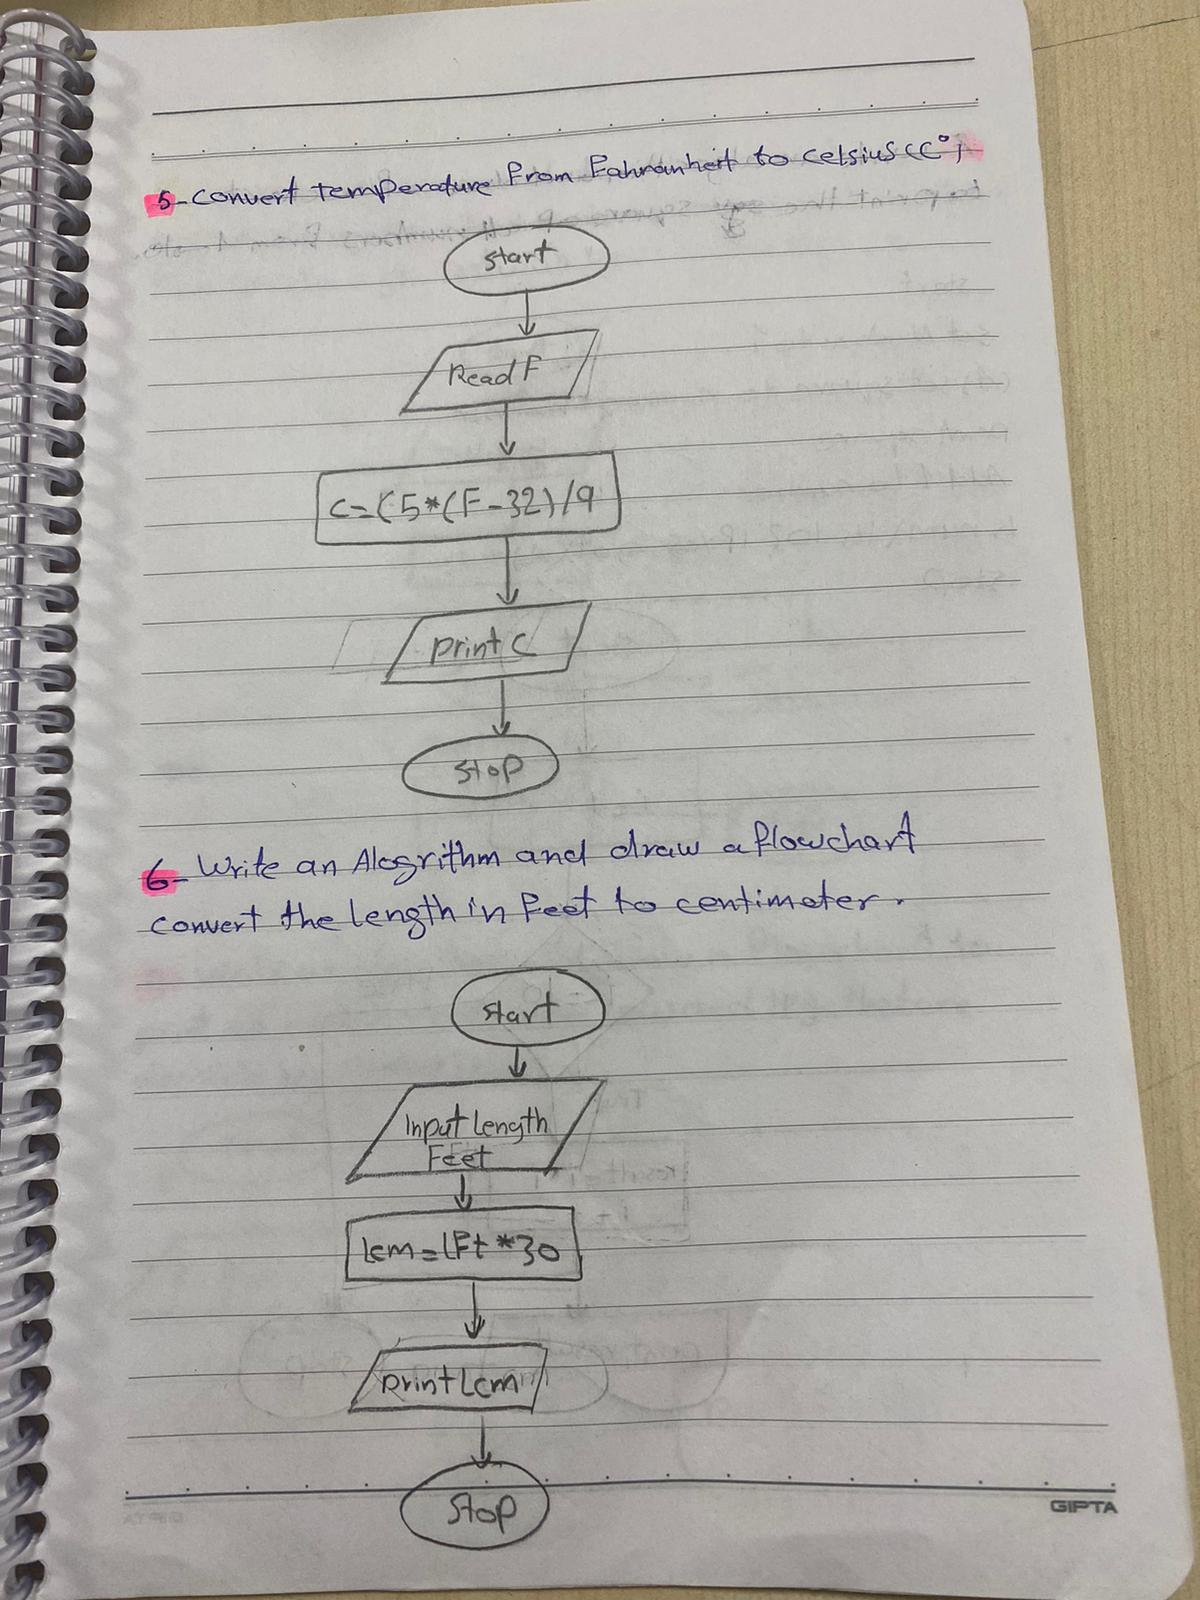 5- convert temperature from Fahranheit to celsius (C°)
start
Read F
C=(5*(F-32)/9
print C
stop
6- Write an Alogrithm and draw a flowchart
convert the length in feet to centimeter.
start
Input Length
Feet
Lcm=LFt*30
print Lcm
stop
GIPTA